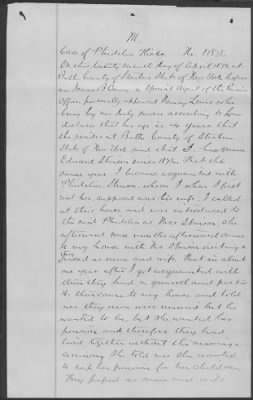 M.
Case of Phidelia Hicks No. 11818.
On this twenty seventh day of April 1876 at
Bath County of Steuben State of New York before
me a Special Agent of the Pension
Office, personally appeared Nancy Lewis who
being by me duly sworn according to Law
deposes that her age is 44 years that
she resides at Bath County of Steuben
State of New York and that I have known
Edward Stinson since 1872. That the
same year I became acquainted with
Phidelia Stinson, whom I when I first
met her, supposed was his wife. I called
at their house and was introduced to
the said Phidelia as Mrs Stinson. She
afterwards came
to my house with Mr Stinson visiting &
passed as man and wife. That in about
one year after I got acquainted with
them they had a quarrel and parted
& then came to my house and told
me they were never married but he
wanted to be, but she wanted her
pension and therefore they had
lived together without the marriage
ceremony She told me she wanted
to keep her pension for her children.
They passed as man and wife